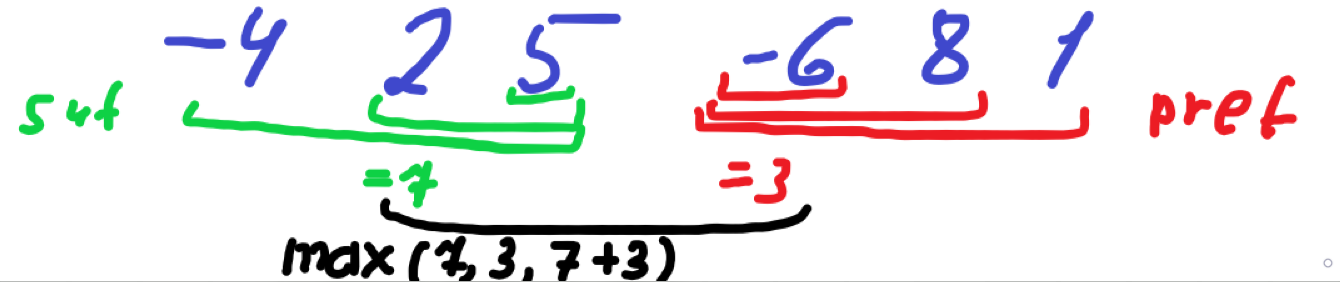 -4 2 5 -6 8 1
suf pref
=7 =3
max(7, 3, 7+3)